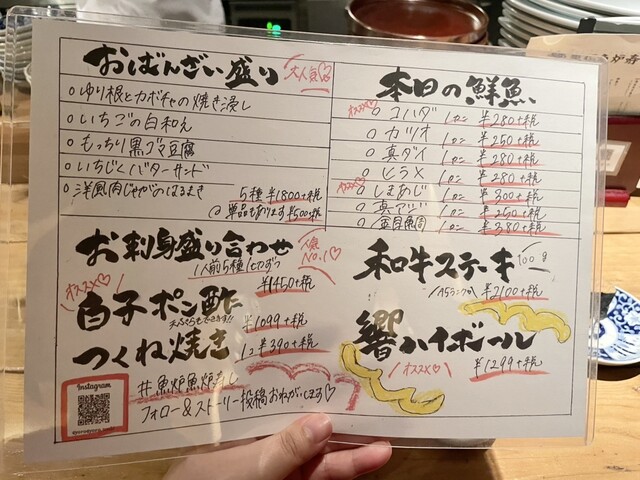 おばんざい盛り 大人気♡
○ゆり根とカボチャの焼き浸し
○いちごの白和え
○もっちり黒ゴマ豆腐
○いちじくバターサンド
○洋風肉じゃがのはるまき
5種 ¥1800+税
@単品もあります ¥500+税
本日の鮮魚
オススメ ○コハダ 1カン ¥280+税
○カツオ 1カン ¥250+税
○真ダイ 1カン ¥280+税
○ヒラメ 1カン ¥280+税
オススメ ○しまあじ 1カン ¥300+税
○真アジ 1カン ¥250+税
○金目鯛 ¥380+税
お刺身盛り合わせ 人気No.1♡
1人前5種1切ずつ
¥1450+税
オススメ♡
白子ポン酢
天ぷらもできます!!
¥1099+税
つくね焼き
1コ ¥390+税
和牛ステーキ 100g
A5ランク ¥2100+税
響ハイボール
オススメ♡ ¥1299+税
Instagram
フォロー&ストーリー投稿おねがいします♡